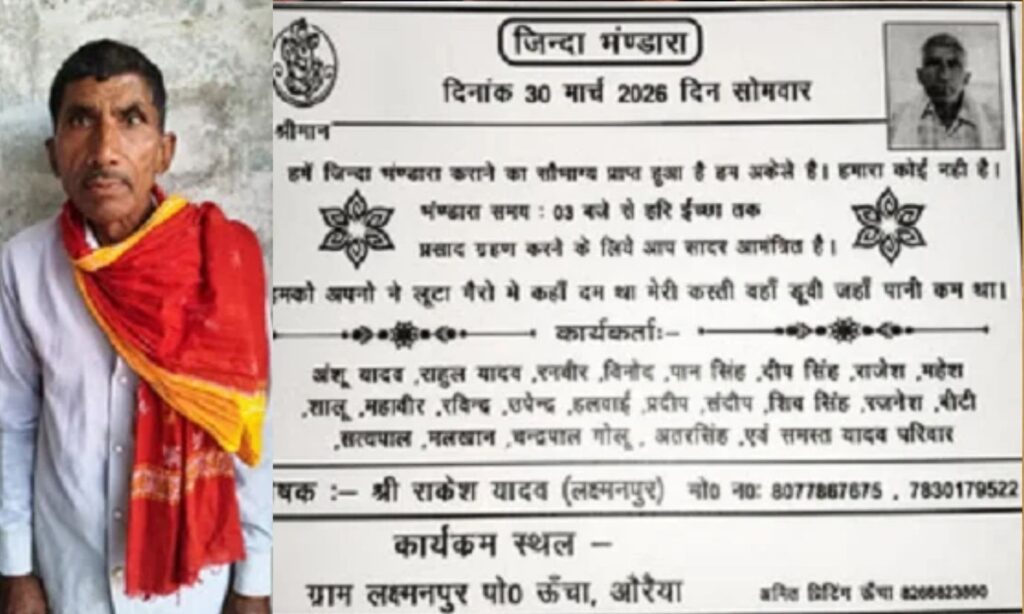 जिन्दा भंण्डारा
दिनांक 30 मार्च 2026 दिन सोमवार
श्रीमान
हमें जिन्दा भंण्डारा कराने का सौभाग्य प्राप्त हुआ है हम अकेले है। हमारा कोई नही है।
भंण्डारा समय : 03 बजे से हरि ईच्छा तक
प्रसाद ग्रहण करने के लिये आप सादर आमंत्रित है।
हमको अपनो ने लूटा गैरो मे कहाँ दम था मेरी कस्ती वहाँ डूबी जहाँ पानी कम था।
कार्यकर्ता:-
अंशू यादव ,राहुल यादव ,रनवीर ,विनोद ,पान सिंह ,दीप सिंह ,राजेश ,महेश
,शालू ,महावीर ,रविन्द्र ,उपेन्द्र ,हलवाई ,प्रदीप ,संदीप ,शिव सिंह ,रजनेश ,बीटी
,सत्यपाल ,मलखान ,चन्द्रपाल गोलू , अतरसिंह ,एवं समस्त यादव परिवार
षक :– श्री राकेश यादव (लक्ष्मनपुर) मो0 न0: 8077867675 , 7830179522
कार्यकम स्थल –
ग्राम लक्ष्मनपुर पो0 ऊँचा, औरैया
अमित प्रिंटिंग ऊँचा